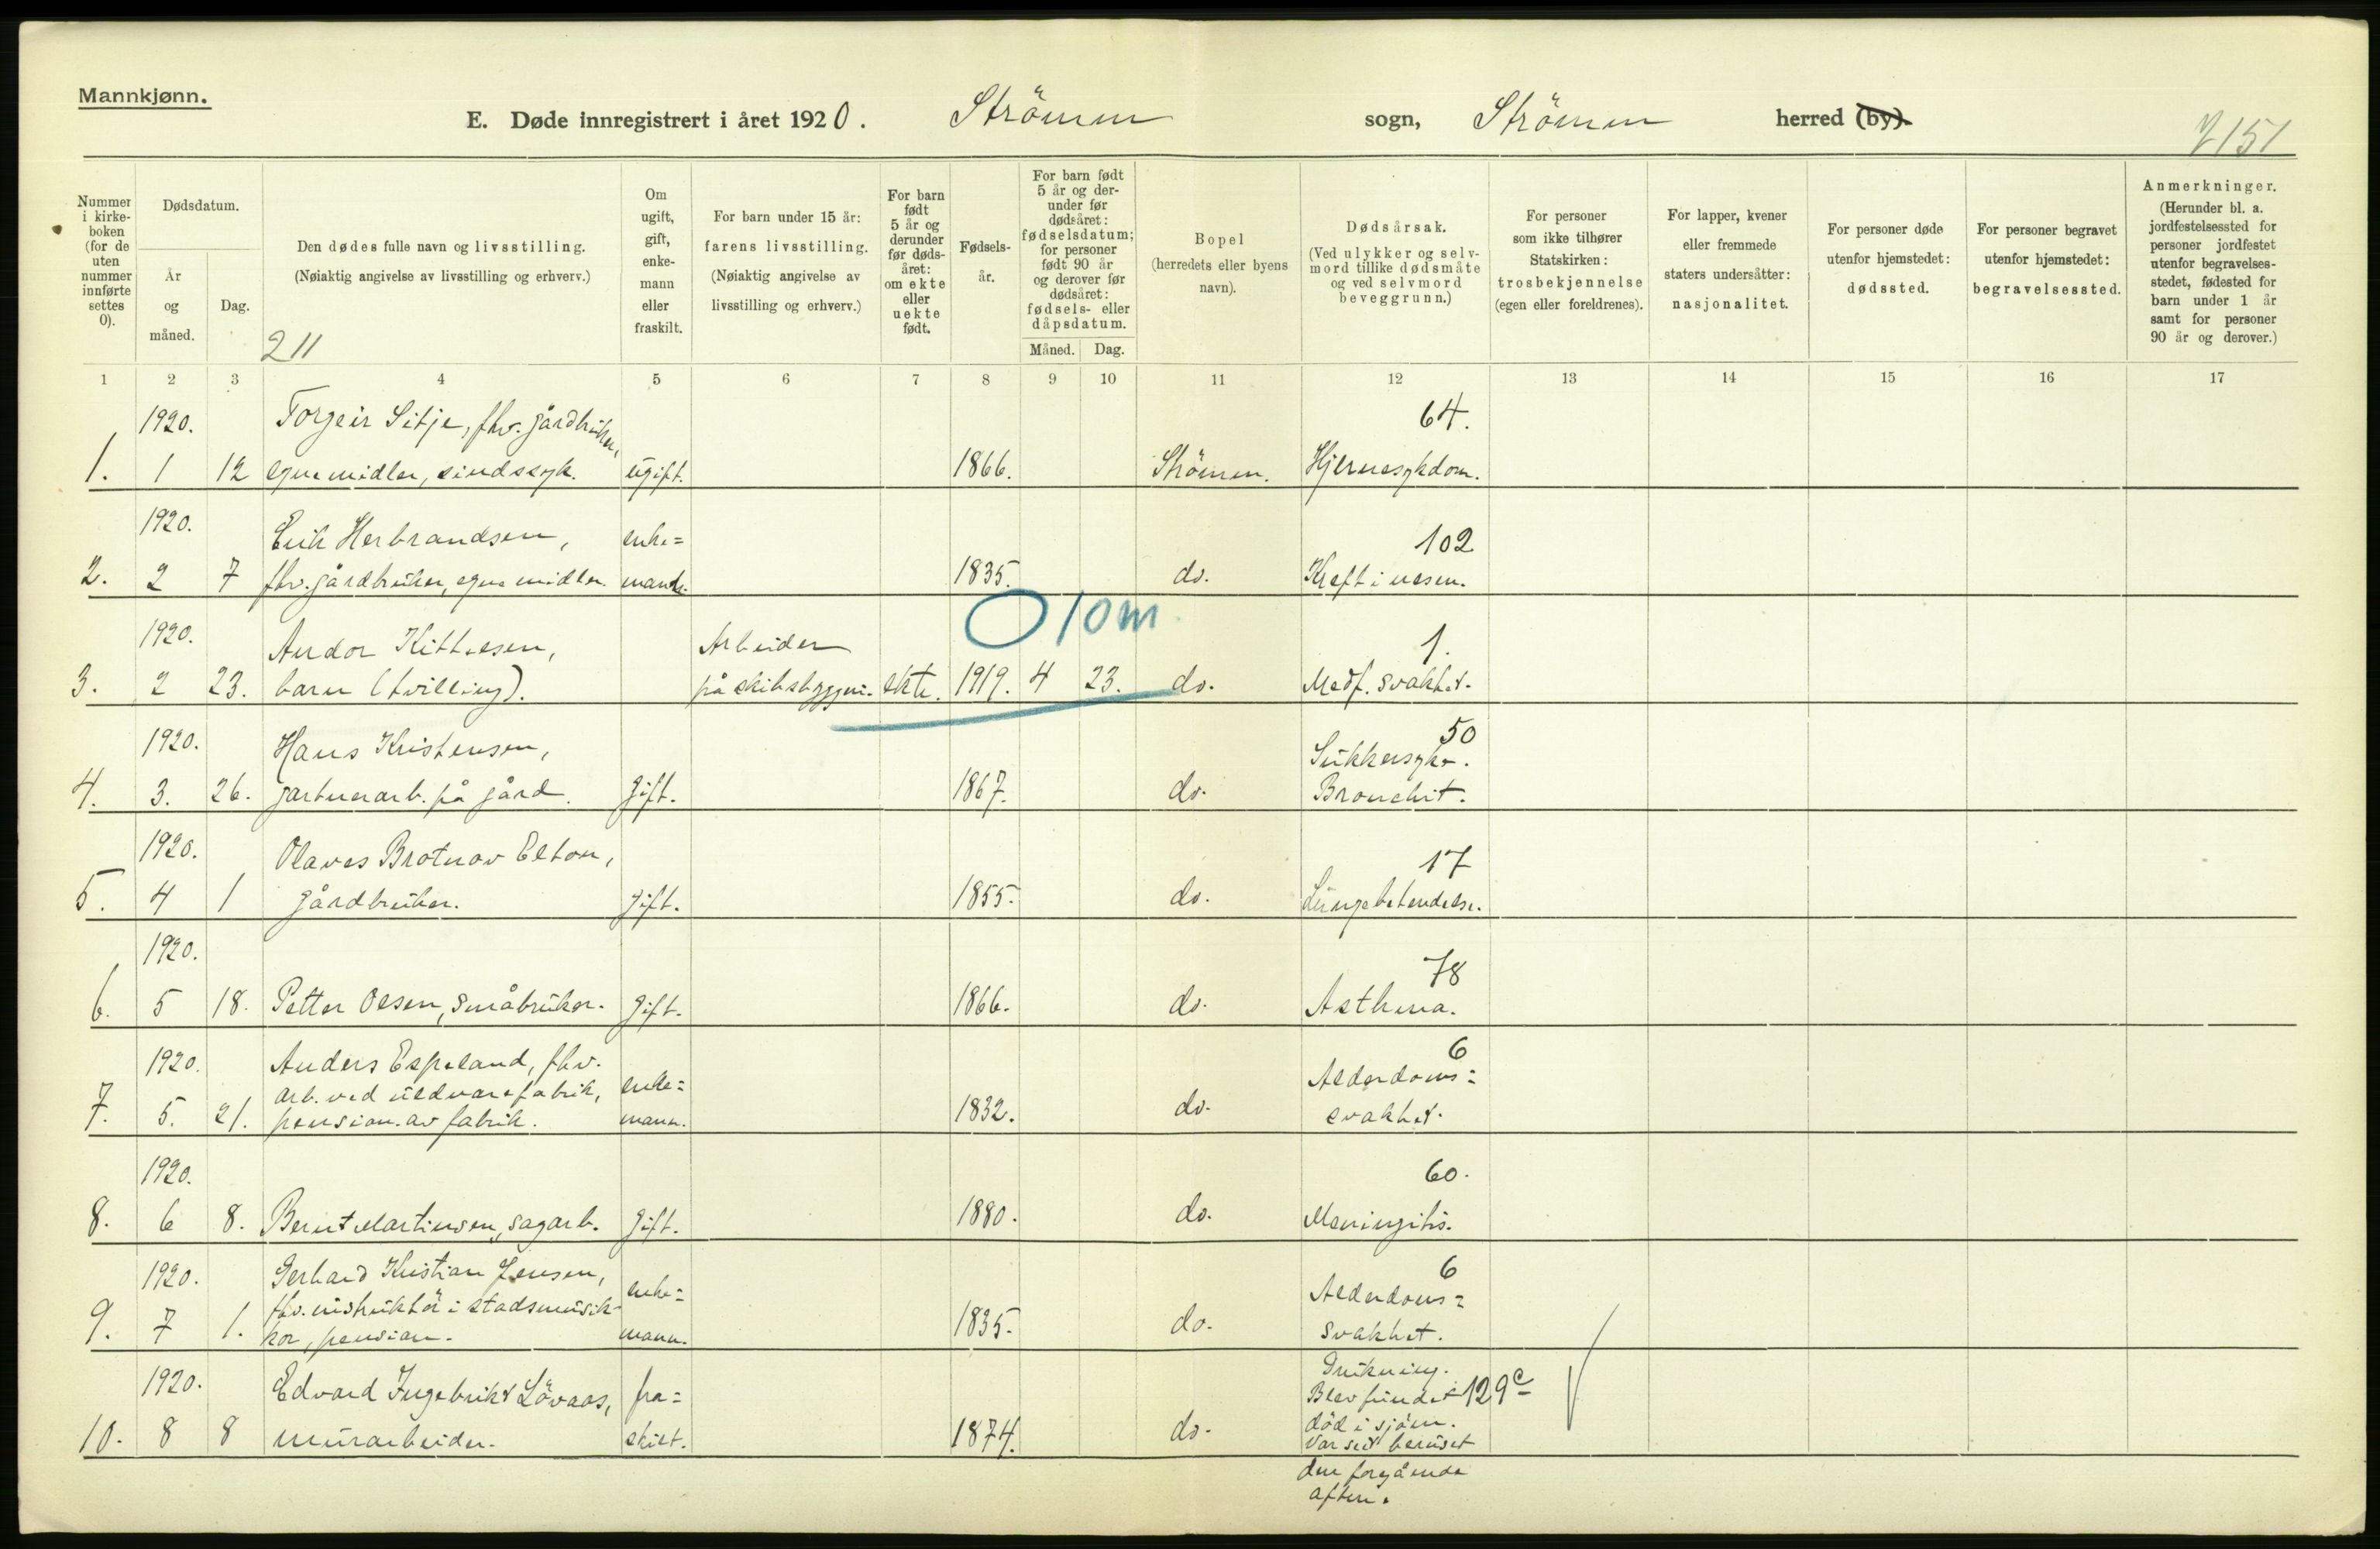 Mannkjønn.
E. Døde innregistrert i året 1920. Strömm sogn, Strömm herred (by).
7151
Nummer i kirke-boken (for de uten nummer innførte settes 0).
Dødsdatum.
År og måned.
Dag.
Den dødes fulle navn og livsstilling.
(Nøiaktig angivelse av livsstilling og erhverv.)
211
Om ugift, gift, enke-mann eller fraskilt.
For barn under 15 år:
farens livsstilling.
(Nøiaktig angivelse av
livsstilling og erhverv.)
For barn født 5 år og derunder før døds-året: om ekte eller uekte født.
Fødsels-år.
For barn født 5 år og der-under før dødsåret: fødselsdatum; for personer født 90 år og derover før dødsåret: fødsels- eller dåpsdatum.
Måned. Dag.
Bopel
(herredets eller byens
navn).
Dødsårsak.
(Ved ulykker og selv-
mord tillike dødsmåte
og ved selvmord
beveggrunn.)
For personer
som ikke tilhører
Statskirken:
trosbekjennelse
(egen eller foreldrenes).
For lapper, kvener
eller fremmede
staters undersåtter:
nasjonalitet.
For personer døde
utenfor hjemstedet:
dødssted.
For personer begravet
utenfor hjemstedet:
begravelsessted.
Anmerkninger.
(Herunder bl. a.
jordfestelsessted for
personer jordfestet
utenfor begravelses-
stedet, fødested for
barn under 1 år
samt for personer
90 år og derover.)
1 2 3 4 5 6 7 8 9 10 11 12 13 14 15 16 17
1920. Torgeir Sitje, fhv. gårdbruker, 64.
1. 1 12 egne midler, sindssyk. ugift. 1866. Strömm. Hjernesykdom.
1920. Erik Herbrandsen, enke= 102
2. 2 7 fhv. gårdbruker, egne midler. mand. 1835. do. Kreft i nesen.
O 10m
1920. Andor Kittelsen, Arbeider 1.
3. 2 23. barn (tvilling). på skibsbyggeri. ekte. 1919. 4 23. do. Medf. svakhet.
1920. Hans Kristensen, 50 Sukkersyke.
4. 3. 26. gartnerarb. på gård. gift. 1867. do. Bronchit.
1920. Olaves Brotnov Elton, 17
5. 4 1 gårdbruker. gift. 1855. do. Lungebetendelse.
1920. 78
6. 5 18. Petter Olsen, småbruker. gift. 1866. do. Asthma.
1920. Anders Espeland, fhv. 6
arb. ved uldvarefabrik, enke= Alderdoms=
7. 5. 21. pension. av fabrik. mann. 1832. do. svakhet.
1920. 60.
8. 6 8. Bernt Martinsen, sagarb. gift. 1880. do. Meningitis.
1920. Gerhard Kristian Jensen, 6
fhv. instruktör i stadsmusik- enke= Alderdoms=
9. 7 1. kor, pension. mann. 1835. do. svakhet.
Drukning.
1920. Edvard Ingebrikt Lövaas, fra= Blev fundet 129c
död i sjöen.
10. 8 8 murarbeider. skilt. 1874. do. Var set beruset
den foregående
aften.